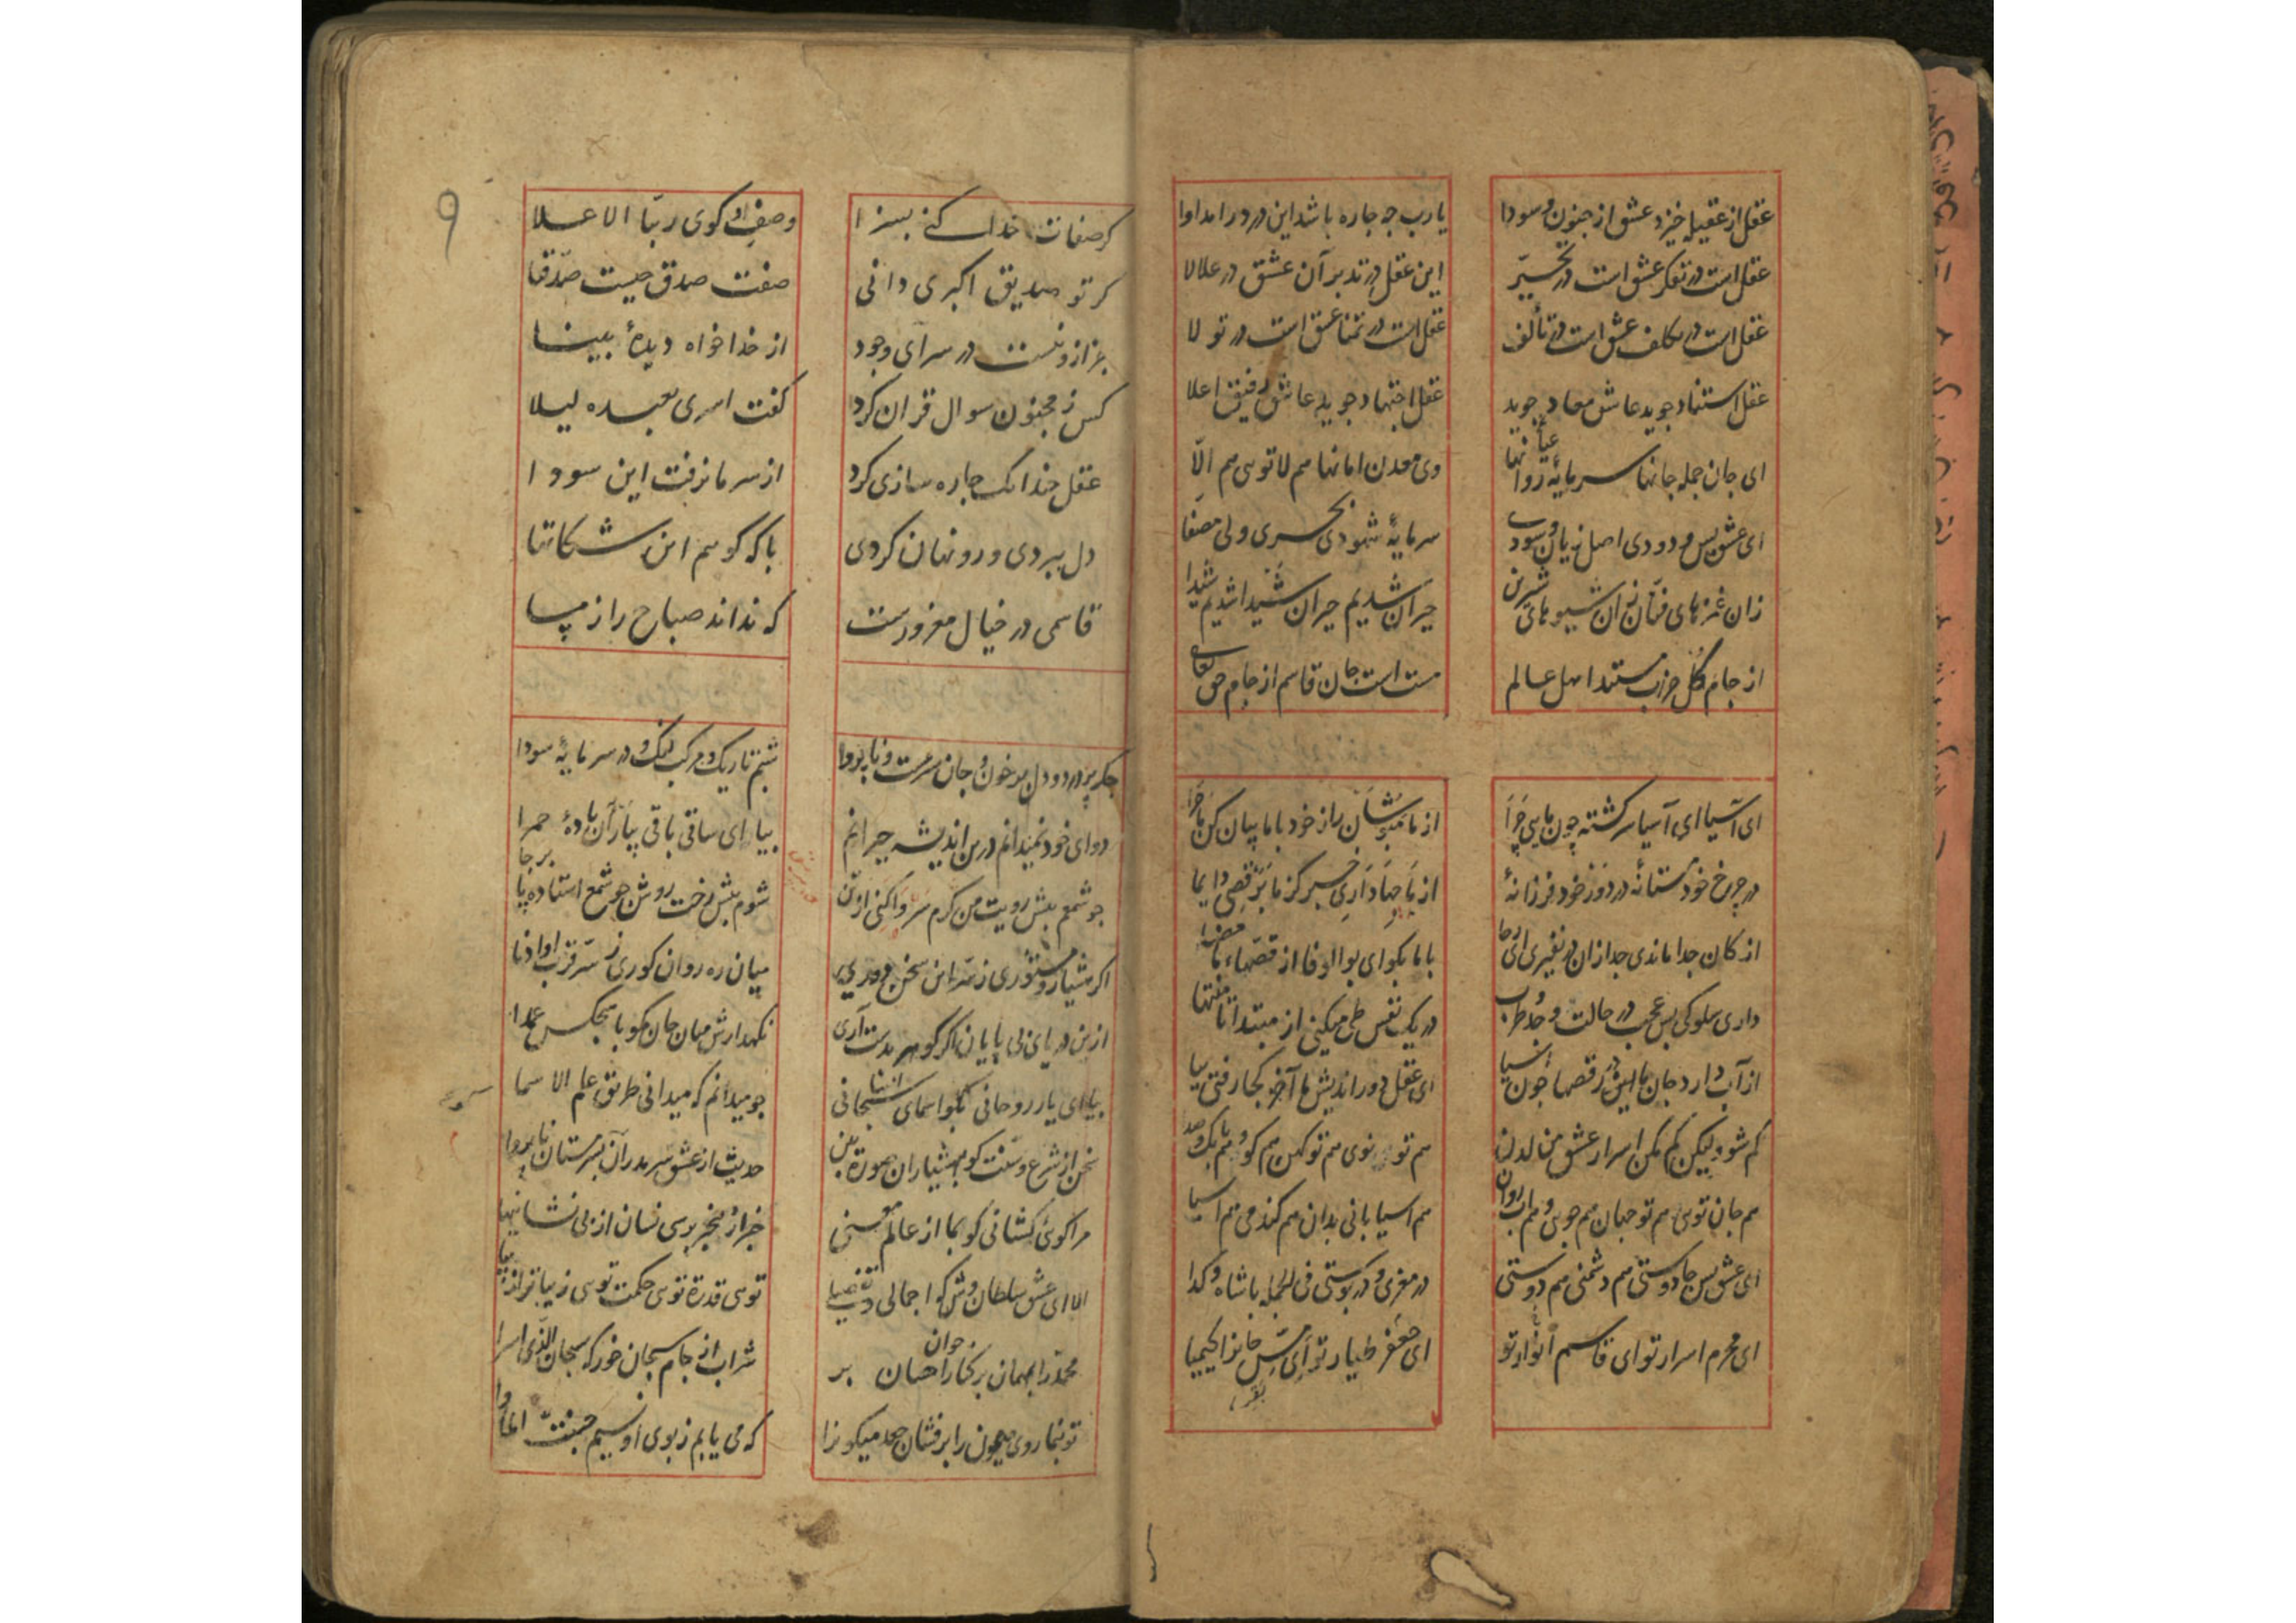 عقل از عقیله خیزد عشق از جنون و سودا
یارب چه چاره باشد این درد را مداوا
عقل است در تفکر عشق است در تحیّر
این عقل در تدبر آن عشق در علالا
عقل است در تکلف عشق است در تألف
عقل است در تمنا عشق است در تولا
عقل استناد جوید عاشق معاد جوید
عقل اجتهاد جوید عاشق رفیق اعلا
ای جان جمله جانها سرمایهٔ روانها
وی معدن امانها هم لا توی هم الّا
ای عشق بس ودودی اصل زیان و سودی
سرمایهٔ شهودی بحری ولی مصفّا
زان غمزهای فتّان زان شیوهای شیرین
حیران شدیم حیران شیدا شدیم شیدا
از جام کل حزب مستند اهل عالم
مست است جان قاسم از جام حق تعالی
ای آسیا ای آسیا سرکشته چون مایی چرا
از ما مپوشان راز خود با ما بیان کن ماجرا
در چرخ خود مستانهٔ در دور خود فرزانهٔ
از ما چها داری خبر کز ما برقصی دایما
از کان جدا ماندی جدا زان در نفیری ای رحا
با ما بکو ای بوالوفا از قصهاء ما مضا
داری سلوکی بس عجب در حالت و وجد و طرب
در یک نفس طی میکنی از مبتدا تا منتها
از آب دارد جان ما این رقصها چون آسیا
ای عقل دور اندیش ما آخر کجا رفتی بیا
کم شو ولیکن کم مکن اسرار عشق من لدن
هم تو نوی هم تو کهن هم کوه هم بانک صدا
هم جان توی هم تو جهان هم جوی و هم آب روان
هم اسیابانی بدان هم کندمی هم اسیا
ای عشق بس جادوستی هم دشمنی هم دوستی
در مغزی و در پوستی فی الجمله با شاه و کدا
ای محرم اسرار تو ای قاسم انوار تو
ای جعفر طیار تو ای مس جانرا کیمیا
۹
کر صفات خدا کنی بسزا
وصف او کوی ربّنا الاعلا
کر تو صدیق اکبری دانی
صفت صدق چیست صدّقنا
جز ازو نیست در سرآی وجود
از خدا خواه دیدهٔ بینا
کس ز مجنون سوال قران کرد
کفت اسری بعبده لیلا
عقل چندانک چاره سازی کرد
از سر ما نرفت این سودا
دل ببردی و رو نهان کردی
با که کویم این شکایتها
قاسمی در خیال مغرورست
که نداند صباح را ز مسا
جکر پر درد و دل پر خون و جان سرمست و ناپروا
شبم تاریک و مرکب لنک و در سر مایهٔ سودا
دوای خود نمیدانم درین اندیشه حیرانم
بیا ای ساقی باقی بیار آن بادهٔ حمرا
چو شمعم پیش رویت من کرم سر واکنی از تن
شوم پیش رخت روشن چو شمع استاده پا برجا
اکر هشیار و مستوری ز سر این سخن دوری
میان ره روان کوری ز سرّ قرب او ادنا
ازین دریای بی پایان اکر کوهر بدست آری
نکهدارش میان جان مکو با هیچکس عمدا
بیا ای یار روحانی بکو اسمای سبحانی
چو میدانم که میدانی طریق علم الاسما
سخن از شرع و سنّت کو بهشیاران صورت بین
حدیث از عشق سرمد ران بسرمستان ناپروا
مرا کوئی کشانی کو بما از عالم معنی
خبر از بیخبر پرسی نشان از بی نشانیها
الا ای عشق سلطان وش کو اجمالی و تفضیلی
توی قدرت توی حکمت توی زیباتر از زیبا
محمّد را بمهمان بر کنار خوان احسان بر
شراب از جام سبحان خور که سبحان الّذی اسرا
تو بنما روی میمون را برفشان جعد میکونرا
که می یابم ز بوی او نسیم جنّت الماوا